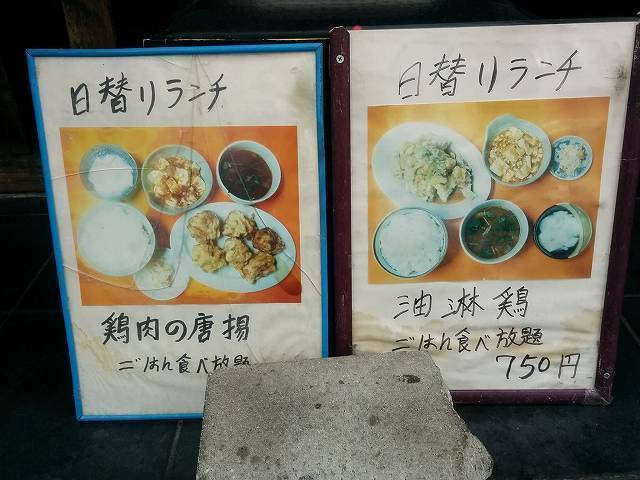 日替りランチ
鶏肉の唐揚
ごはん食べ放題
日替りランチ
油淋鶏
ごはん食べ放題
750円